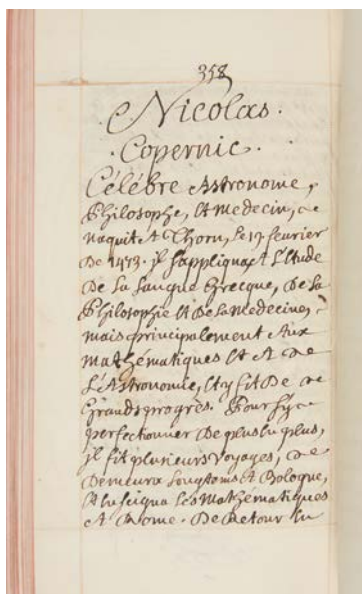 358
Nicolas.
Copernic.
Célébre Astronome,
Philosophe, Et Medecin,
naquit A Thorn, Le 19. fevrier
De 1473. il s'appliqua A L'Etude
De La Langue Grecque, De La
Philosophie Et De La Medecine,
mais principalement Aux
mathématiques Et A
L'Astronomie, Et y fit De
Grands progrès. Pour s'y
perfectionner De plus En plus,
il fit plusieurs Voyages,
Demeura Longtems A Bologne,
Enseigna Les Mathématiques
A Rome. De Retour En